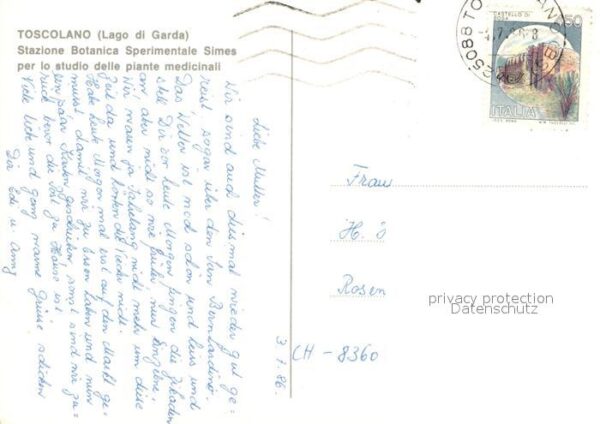 TOSCOLANO (Lago di Garda)
Stazione Botanica Sperimentale Simes
per lo studio delle piante medicinali
Liebe Mutter!
Wir sind auch diesmal wieder gut ge-
reist, sogar über den San Bernardino.
Das Wetter ist noch schön und heiss und
stell Dir vor heute Morgen fingen die Zikaden
an aber nicht so wie früher nur einzelne.
Wir waren ja jahrelang nicht mehr um diese
Zeit da und hörten die Viecher nicht.
Habe heute Morgen mal erst auf den Markt ge-
musst damit wir zu Essen haben und nun
ein paar Karten geschrieben, sonst sind wir zu-
rück bevor die Post zu Hause ist.
Viele liebe und ganz warme Grüsse schicken
Dir Edi u. Anny
3.7.86.
Frau
H. J
Rosen
CH - 8360
privacy protection
Datenschutz
25088 TO
CASTELLO DI
ITALIA